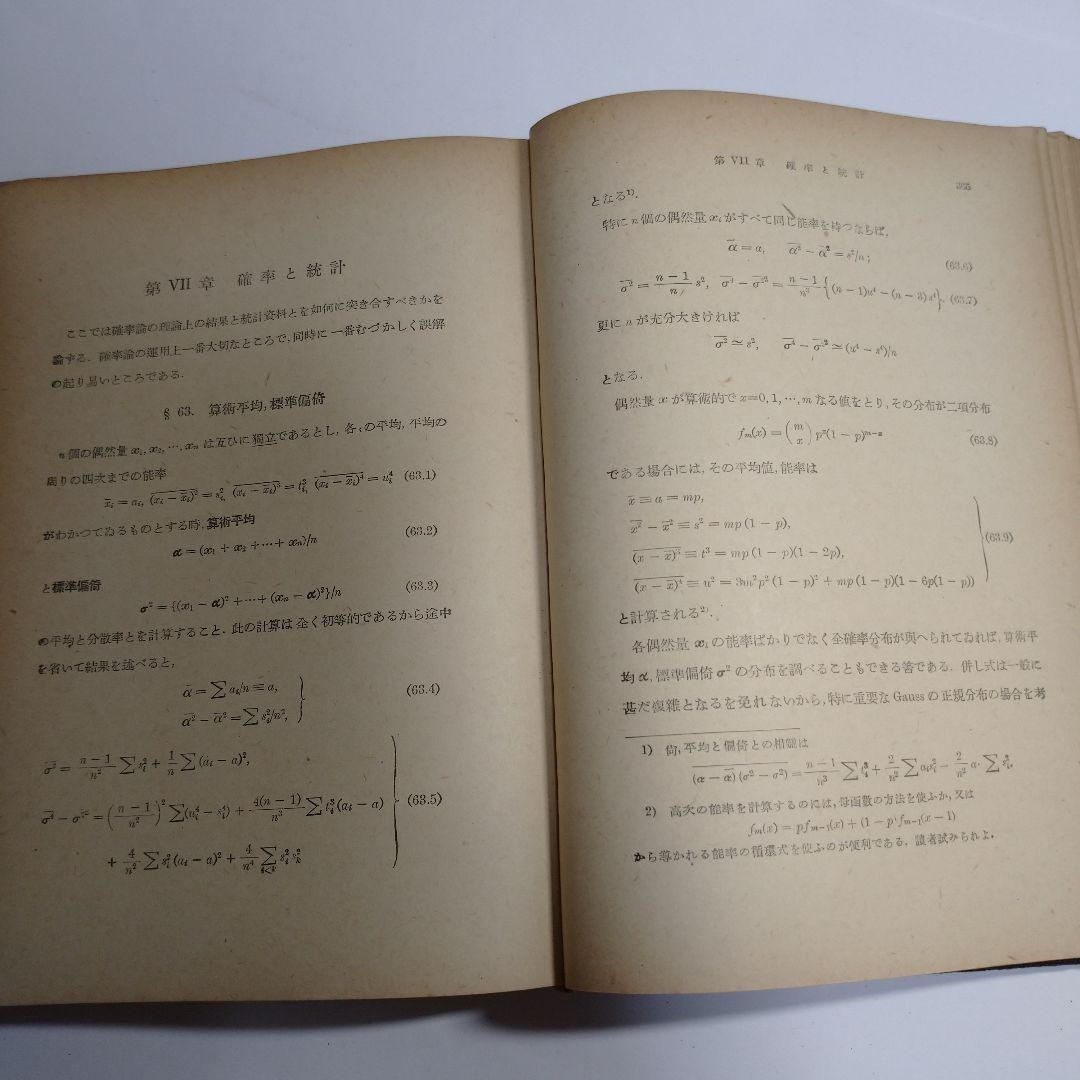 第 VII 章 確 率 と 統 計
ここでは確率論の理論上の結果と統計資料とを如何に突き合すべきかを
論ずる. 確率論の運用上一番大切なところで, 同時に一番むづかしく誤解
の起り易いところである.
§ 63. 算術平均, 標準偏倚
n 個の偶然量 x₁, x₂, ⋯, xₙ は互ひに獨立であるとし, 各々の平均, 平均の
周りの四次までの能率
x̄ᵢ = aᵢ, \overline{(xᵢ − x̄ᵢ)²} = sᵢ², \overline{(xᵢ − x̄ᵢ)³} = tᵢ³, \overline{(xᵢ − x̄ᵢ)⁴} = uᵢ⁴ (63.1)
がわかつてゐるものとする時, 算術平均
α = (x₁ + x₂ + ⋯ + xₙ)/n (63.2)
と標準偏倚
σ² = {(x₁ − α)² + ⋯ + (xₙ − α)²}/n (63.3)
の平均と分散率とを計算すること. 此の計算は全く初等的であるから途中
を省いて結果を述べると,
ᾱ = ∑ aᵢ/n ≡ a,
\overline{α²} − ᾱ² = ∑ sᵢ²/n², (63.4)
\overline{σ²} = \frac{n − 1}{n²} ∑ sᵢ² + \frac{1}{n} ∑ (aᵢ − a)²,
\overline{σ⁴} − \overline{σ²}² = (\frac{n − 1}{n²})² ∑(uᵢ⁴ − sᵢ⁴) + \frac{4(n − 1)}{n³} ∑ tᵢ³ (aᵢ − a) (63.5)
+ \frac{4}{n²} ∑ sᵢ² (aᵢ − a)² + \frac{4}{n⁴} ∑ sᵢ² sₖ²
第 VII 章 確 率 と 統 計 365
となる¹⁾.
特に n 個の偶然量 xᵢ がすべて同じ能率を持つならば,
ᾱ = a, \overline{α²} − ᾱ² = s²/n; (63.6)
\overline{σ²} = \frac{n − 1}{n} s², \overline{σ⁴} − \overline{σ²}² = \frac{n − 1}{n³} {(n − 1)u⁴ − (n − 3)s⁴}. (63.7)
更に n が充分大きければ
\overline{σ²} ≃ s², \overline{σ⁴} − \overline{σ²}² ≃ (u⁴ − s⁴)/n
となる.
偶然量 x が算術的で x=0, 1, ⋯, m なる値をとり, その分布が二項分布
fₘ(x) = \binom{m}{x} pˣ(1 − p)ᵐ⁻ˣ (63.8)
である場合には, その平均値, 能率は
x̄ ≡ a = mp,
\overline{x²} − x̄² ≡ s² = mp (1 − p),
\overline{(x − x̄)³} ≡ t³ = mp (1 − p)(1 − 2p), (63.9)
\overline{(x − x̄)⁴} ≡ u² = 3m²p² (1 − p)² + mp (1 − p)(1 − 6p(1 − p))
と計算される²⁾.
各偶然量 xᵢ の能率ばかりでなく全確率分布が與へられてゐれば, 算術平
均 α, 標準偏倚 σ² の分布を調べることもできる筈である. 併し式は一般に
甚だ複雜となるを免れないから, 特に重要な Gauss の正規分布の場合を考
1) 尙, 平均と偏倚との相關は
\overline{(α − ᾱ) (σ² − \overline{σ²})} = \frac{n − 1}{n³} ∑ tᵢ³ + \frac{2}{n²} ∑ aᵢsᵢ² − \frac{2}{n²} a · ∑ sᵢ².
2) 高次の能率を計算するのには, 母函數の方法を使ふか, 又は
fₘ(x) = pfₘ₋₁(x) + (1 − p) fₘ₋₁(x − 1)
から導かれる能率の循環式を使ふのが便利である. 讀者試みられよ.